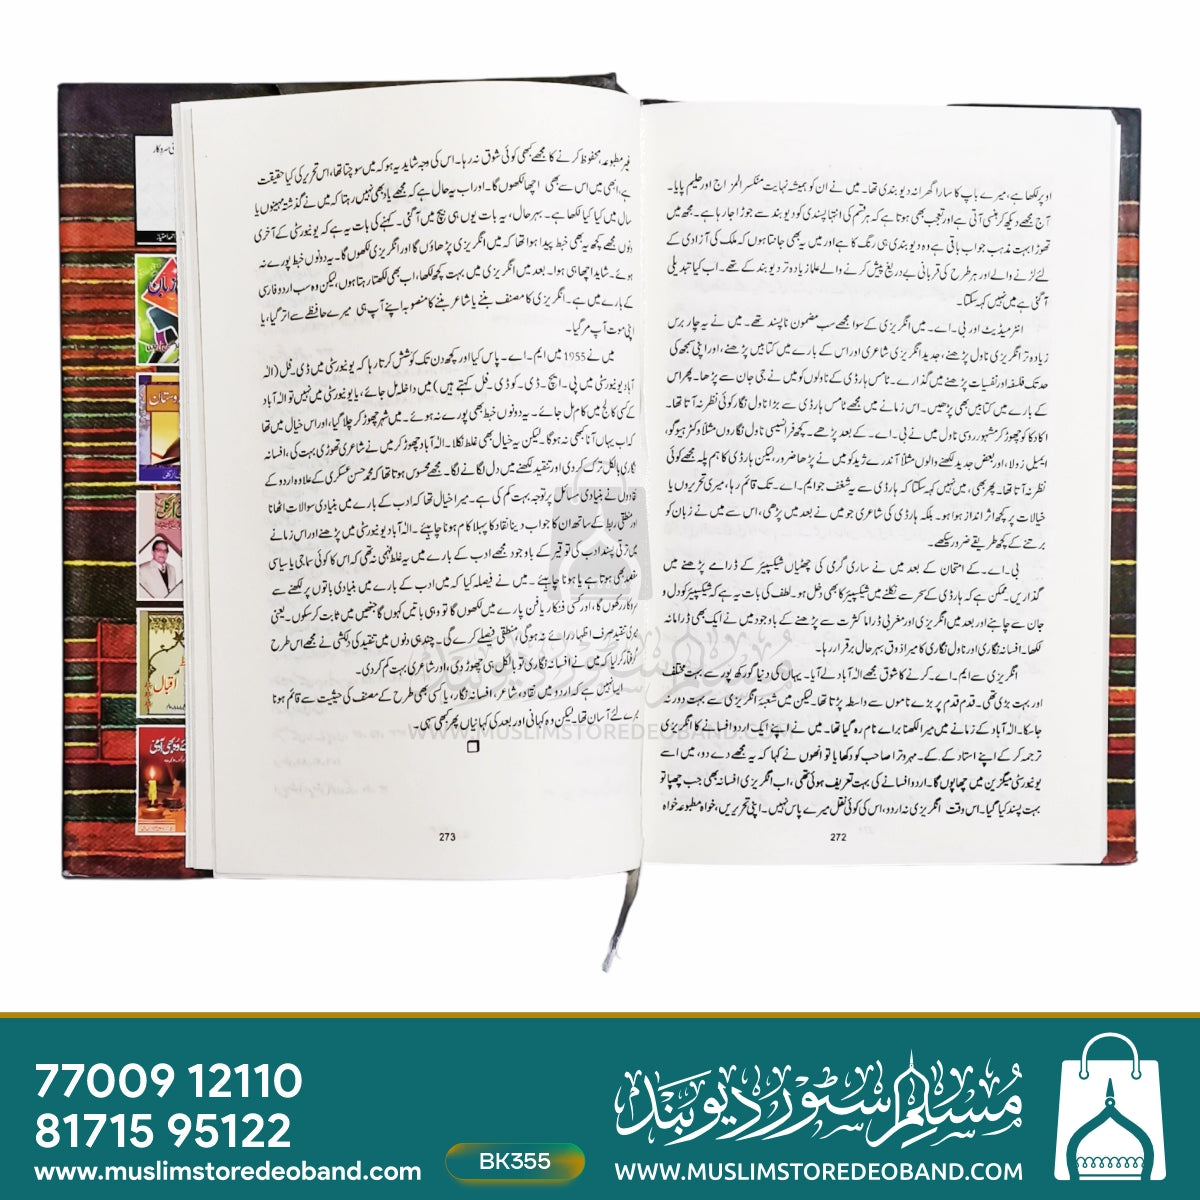 اوپر لکھا ہے، میرے باپ کا سارا گھرانہ دیوبندی تھا۔ میں نے ان کو ہمیشہ نہایت منکسر المزاج اور حلیم پایا۔
آج مجھے دیکھ کر ہنسی آتی ہے اور تعجب بھی ہوتا ہے کہ ہر قسم کی انتہا پسندی کو دیوبند سے جوڑا جا رہا ہے۔ مجھ میں
تھوڑا بہت مذہب جو اب باقی ہے وہ دیوبندی ہی رنگ کا ہے اور میں یہ بھی جانتا ہوں کہ ملک کی آزادی کے
لئے لڑنے والے اور ہر طرح کی قربانی بے دریغ پیش کرنے والے علما زیادہ تر دیوبند کے تھے۔ اب کیا تبدیلی
آگئی ہے میں نہیں کہہ سکتا۔
انٹرمیڈیٹ اور بی۔اے۔ میں انگریزی کے سوا مجھے سب مضمون ناپسند تھے۔ میں نے یہ چار برس
زیادہ تر انگریزی ناول پڑھنے، جدید انگریزی شاعری اور اس کے بارے میں کتابیں پڑھنے، اور اپنی سمجھ کی
حد تک فلسفہ اور نفسیات پڑھنے میں گذارے۔ ٹامس ہارڈی کے ناولوں کو میں نے جی جان سے پڑھا۔ پھر اس
کے بارے میں کتابیں بھی پڑھیں۔ اس زمانے میں مجھے ٹامس ہارڈی سے بڑا ناول نگار کوئی نظر نہ آتا تھا۔
اکا دکا کو چھوڑ کر مشہور روسی ناول میں نے بی۔اے۔ کے بعد پڑھے۔ کچھ فرانسیسی ناول نگاروں مثلاً وکٹر ہیوگو،
ایمیل زولا، اور بعض جدید لکھنے والوں مثلاً آندرے ژید کو میں نے پڑھا ضرور، لیکن ہارڈی کا ہم پلہ مجھے کوئی
نظر نہ آتا تھا۔ پھر بھی، میں نہیں کہہ سکتا کہ ہارڈی سے یہ شغف جو ایم۔اے۔ تک قائم رہا، میری تحریروں یا
خیالات پر کچھ اثر انداز ہوا ہو۔ بلکہ ہارڈی کی شاعری جو میں نے بعد میں پڑھی، اس سے میں نے زبان کو
برتنے کے کچھ طریقے ضرور سیکھے۔
بی۔اے۔ کے امتحان کے بعد میں نے ساری گرمی کی چھٹیاں شیکسپیئر کے ڈرامے پڑھنے میں
گذاریں۔ ممکن ہے کہ ہارڈی کے سحر سے نکلنے میں شیکسپیئر کا بھی دخل ہو۔ لطف کی بات یہ ہے کہ شیکسپیئر کو دل و
جان سے چاہنے اور بعد میں انگریزی اور مغربی ڈراما کثرت سے پڑھنے کے باوجود میں نے ایک بھی ڈراما نہ
لکھا۔ افسانہ نگاری اور ناول نگاری کا میرا ذوق بہر حال برقرار رہا۔
انگریزی سے ایم۔اے۔ کرنے کا شوق مجھے الٰہ آباد لے آیا۔ یہاں کی دنیا گورکھ پور سے بہت مختلف
اور بہت بڑی تھی۔ قدم قدم پر بڑے ناموں سے واسطہ پڑتا تھا۔ لیکن میں شعبۂ انگریزی سے بہت دور نہ
جا سکا۔ الٰہ آباد کے زمانے میں میرا لکھنا برائے نام رہ گیا تھا۔ میں نے اپنے ایک اردو افسانے کا انگریزی
ترجمہ کر کے اپنے استاد کے۔کے۔ مہروترا صاحب کو دکھایا تو انھوں نے کہا کہ یہ مجھے دے دو، میں اسے
یونیورسٹی میگزین میں چھاپوں گا۔ اردو افسانے کی بہت تعریف ہوئی تھی، اب انگریزی افسانہ بھی جب چھپا تو
بہت پسند کیا گیا۔ اس وقت انگریزی نہ اردو، اس کی کوئی نقل میرے پاس نہیں۔ اپنی تحریریں، خواہ مطبوعہ خواہ
272
غیر مطبوعہ، محفوظ کرنے کا مجھے کبھی کوئی شوق نہ رہا۔ اس کی وجہ شاید یہ ہو کہ میں سوچتا تھا، اس تحریر کی کیا حقیقت
ہے، ابھی میں اس سے بھی اچھا لکھوں گا۔ اور اب یہ حال ہے کہ مجھے یاد بھی نہیں رہتا کہ میں نے گذشتہ مہینوں یا
سال میں کیا کیا لکھا ہے۔ بہر حال، یہ بات یوں ہی بیچ میں آگئی۔ کہنے کی بات یہ ہے کہ یونیورسٹی کے آخری
دنوں مجھے کچھ یہ بھی خبط پیدا ہوا تھا کہ میں انگریزی پڑھاؤں گا اور انگریزی لکھوں گا۔ یہ دونوں خبط پورے نہ
ہوئے۔ شاید اچھا ہی ہوا۔ بعد میں انگریزی میں بہت کچھ لکھا، اب بھی لکھتا رہتا ہوں، لیکن وہ سب اردو فارسی
کے بارے میں ہے۔ انگریزی کا مصنف بننے یا شاعر بننے کا منصوبہ اپنے آپ ہی میرے حافظے سے اتر گیا، یا
اپنی موت آپ مر گیا۔
میں نے 1955 میں ایم۔اے۔ پاس کیا اور کچھ دن تک کوشش کرتا رہا کہ یونیورسٹی میں ڈی۔فل (الٰہ
آباد یونیورسٹی میں پی۔ایچ۔ڈی۔ کو ڈی۔فل کہتے ہیں) میں داخلہ مل جائے، یا یونیورسٹی میں نہیں تو الٰہ آباد
کے کسی کالج میں کام مل جائے۔ یہ دونوں خبط بھی پورے نہ ہوئے۔ میں شہر چھوڑ کر چلا گیا، اور اس خیال میں تھا
کہ اب یہاں آنا کبھی نہ ہوگا۔ لیکن یہ خیال بھی غلط نکلا۔ الٰہ آباد چھوڑ کر میں نے شاعری تھوڑی بہت کی، افسانہ
نگاری بالکل ترک کر دی اور تنقید لکھنے میں دل لگانے لگا۔ مجھے محسوس ہوتا تھا کہ محمد حسن عسکری کے علاوہ اردو کے
نقادوں نے بنیادی مسائل پر توجہ بہت کم کی ہے۔ میرا خیال تھا کہ ادب کے بارے میں بنیادی سوالات اٹھانا
اور منطقی ربط کے ساتھ ان کا جواب دینا نقاد کا پہلا کام ہونا چاہیئے۔ الٰہ آباد یونیورسٹی میں پڑھنے اور اس زمانے
میں ترقی پسند ادب کی توقیر کے باوجود مجھے ادب کے بارے میں یہ غلط فہمی نہ تھی کہ اس کا کوئی سماجی یا سیاسی
مقصد بھی ہوتا ہے یا ہونا چاہیئے۔ میں نے فیصلہ کیا کہ میں ادب کے بارے میں بنیادی باتوں پر لکھنے سے
سروکار رکھوں گا، اور کسی فنکار یا فن پارے میں لکھوں گا تو وہی باتیں کہوں گا جنھیں میں ثابت کر سکوں۔ یعنی
میری تنقید صرف اظہار رائے نہ ہوگی، منطقی فیصلے کرے گی۔ چند ہی دنوں میں تنقید کی دلکشی نے مجھے اس طرح
گرفتار کر لیا کہ میں نے افسانہ نگاری تو بالکل ہی چھوڑ دی، اور شاعری بہت کم کر دی۔
ایسا نہیں ہے کہ اردو میں نقاد، شاعر، افسانہ نگار، یا کسی بھی طرح کے مصنف کی حیثیت سے قائم ہونا
میرے لئے آسان تھا۔ لیکن وہ کہانی اور بعد کی کہانیاں پھر کبھی سہی۔
273
WWW.MUSLIMSTOREDEOBAND.COM
77009 12110
81715 95122
www.muslimstoredeoband.com
BK355
مسلم سٹور دیوبند
WWW.MUSLIMSTOREDEOBAND.COM